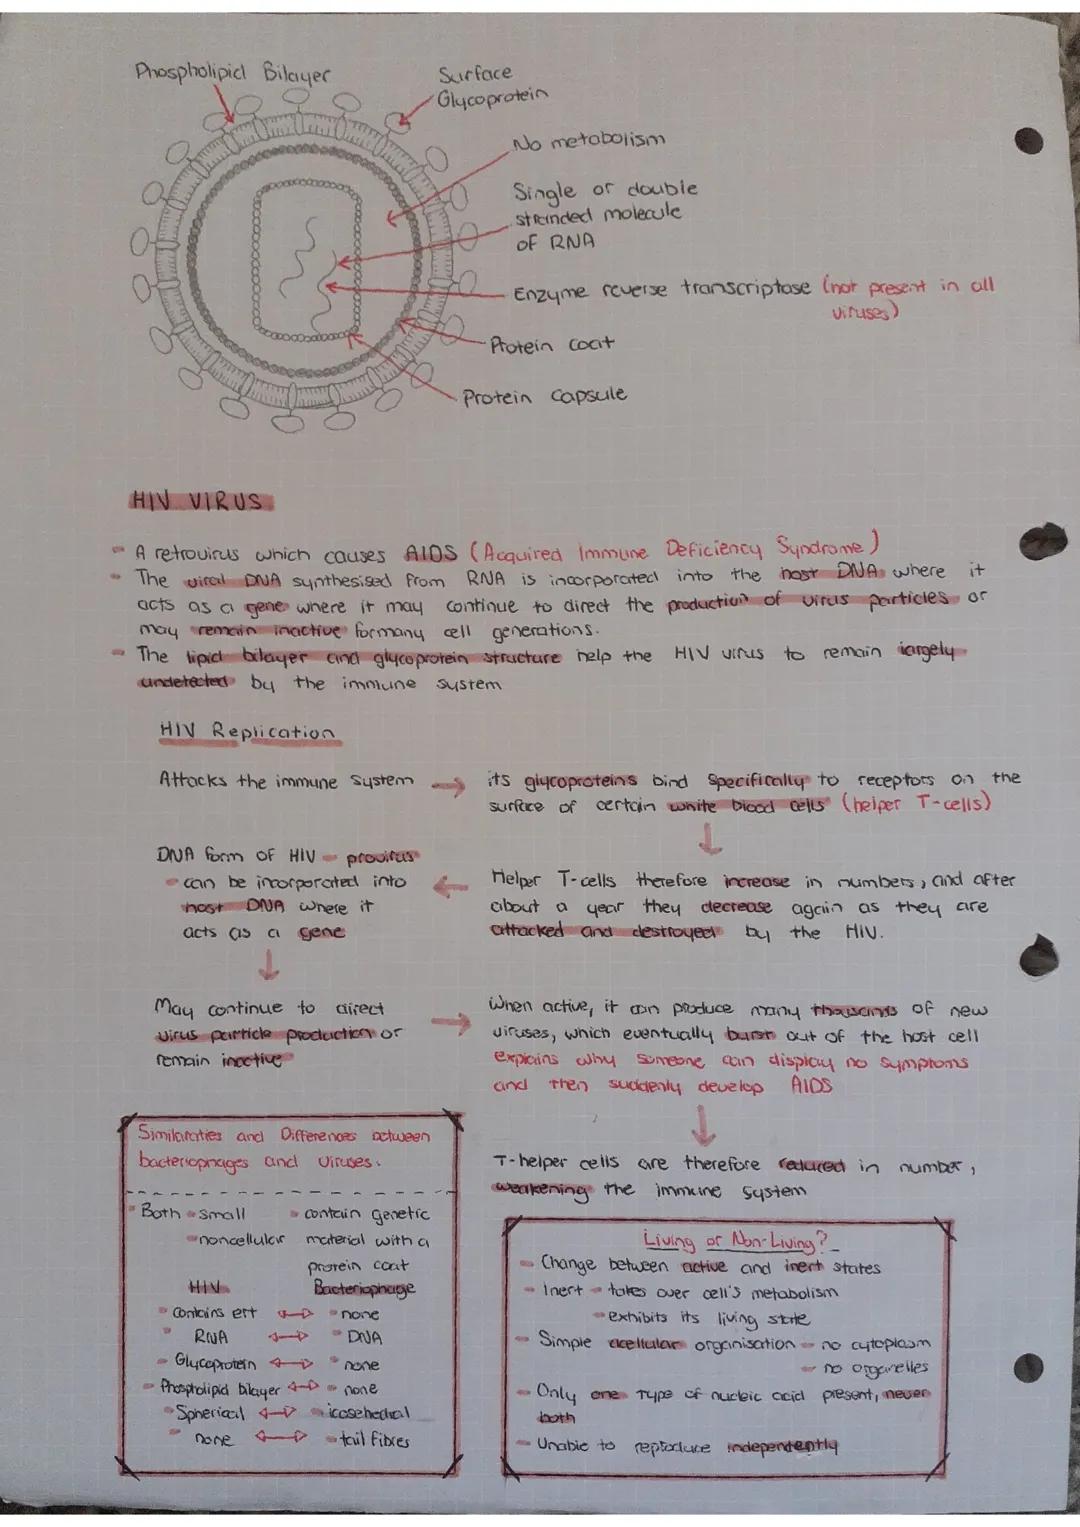 Phospholipid Bilayer
Surface
Glycoprotein
No metabolism
Single or double
stranded molecule
of RNA
Enzyme reverse transcriptase (not present in all
viruses)
Protein coat
Protein capsule
HIV VIRUS
- A retrovirus which causes AIDS (Acquired Immune Deficiency Syndrome)
- The viral DNA synthesised from RNA is incorporated into the host DNA where it
acts as a gene where it may continue to direct the production of virus particles or
may remain inactive for many cell generations.
- The lipid bilayer and glycoprotein structure help the HIV virus to remain largely
undetected by the immune system
HIV Replication
Attacks the immune system →
its glycoproteins bind specifically to receptors on the
surface of certain white blood cells (helper T-cells)
↓
Helper T-cells therefore increase in numbers, and after
about a year they decrease again as they are
attacked and destroyed by the HIV.
←
DNA form of HIV - provirus
- can be incorporated into
host DNA where it
acts as a gene
↓
May continue to direct
virus particle production or
remain inactive
→
When active, it can produce many thousands of new
viruses, which eventually burst out of the host cell
explains why someone can display no symptoms
and then suddenly develop AIDS
↓
T-helper cells are therefore reduced in number,
weakening the immune system
Similarities and Differences between
bacteriophages and viruses.
- Both - small - contain genetic
- noncellular material with a
protein coat
HIV Bacteriophage
- contains ert ↔ - none
- RNA ↔ - DNA
- Glycoprotein ↔ - none
- Phospholipid bilayer ↔ - none
- Spherical ↔ - icosehedral
- none ↔ - tail fibres
Living or Non-Living?
- Change between active and inert states
- Inert - takes over cell's metabolism
- exhibits its living state
- Simple acellular organisation - no cytoplasm
- no organelles
- Only one type of nucleic acid present, never
both
- Unable to reproduce independently